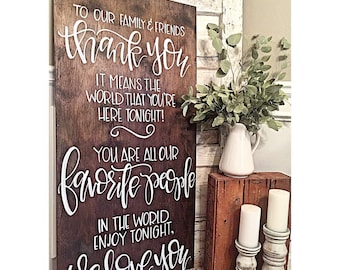 TO OUR FAMILY & FRIENDS
thank you
IT MEANS THE
WORLD THAT YOU'RE
HERE TONIGHT!
YOU ARE ALL OUR
favorite people
IN THE WORLD.
ENJOY TONIGHT,
we love you